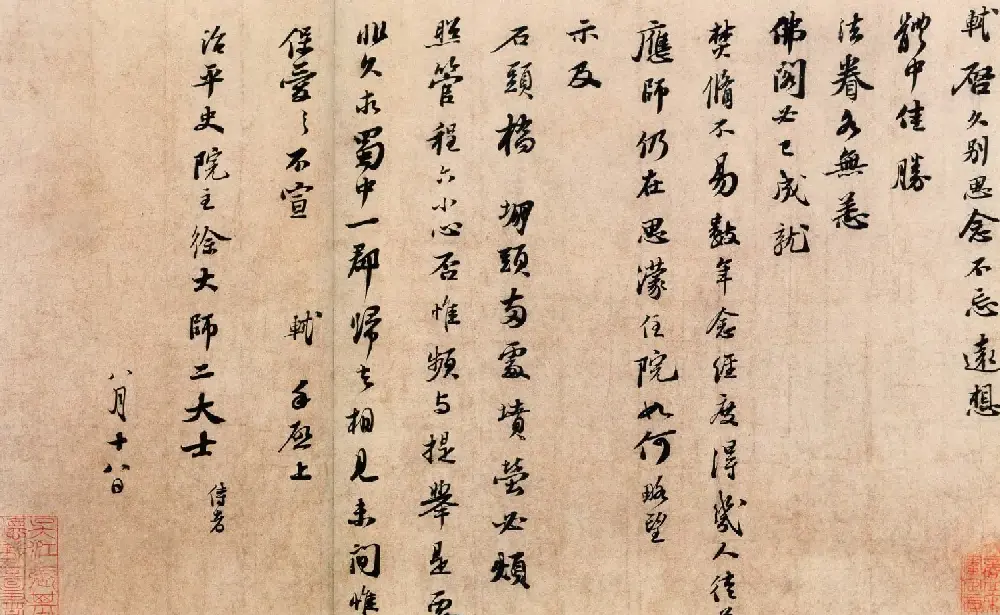 軾啓久別思念不忘遠想
體中佳勝
法眷各無恙
佛閣必已成就
焚脩不易數年念經度得幾人徒
應師仍在思濛住院如何略望
示及
石頭橋 堋頭兩處墳塋必煩
照管程六小心否惟頻與提舉是要
非久求蜀中一郡歸去相見未間惟
保愛之不宣 軾 手啓上
治平史院主徐大師二大士 侍者
八月十八日